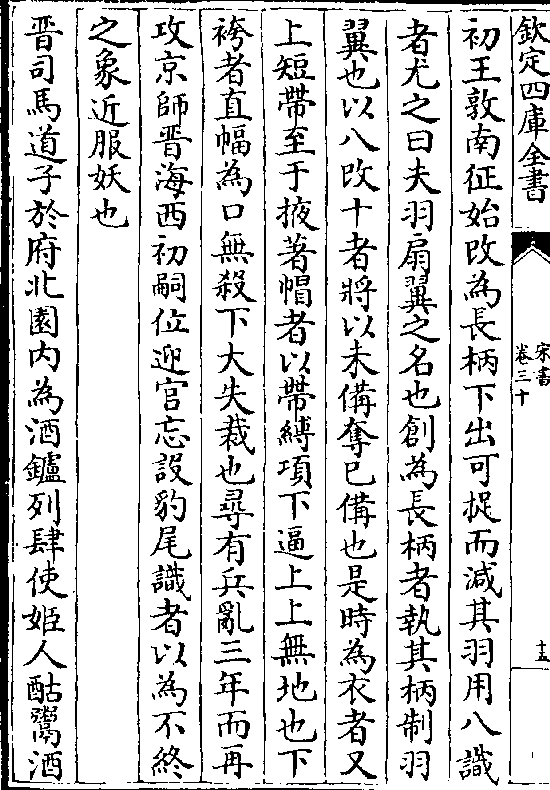 欽定四庫全書
宋書
卷三十
十五
初王敦南征始改為長柄下出可捉而減其羽用八識
者尤之曰夫羽扇翼之名也創為長柄者執其柄制羽
翼也以八改十者將以未備奪已備也是時為衣者又
上短帶至于掖著帽者以帶縛項下逼上上無地也下
袴者直幅為口無殺下大失裁也尋有兵亂三年而再
攻京師晉海西初嗣位迎官忘設豹尾識者以為不終
之象近服妖也
晉司馬道子於府北園内為酒鑪列肆使姬人酤鬻酒